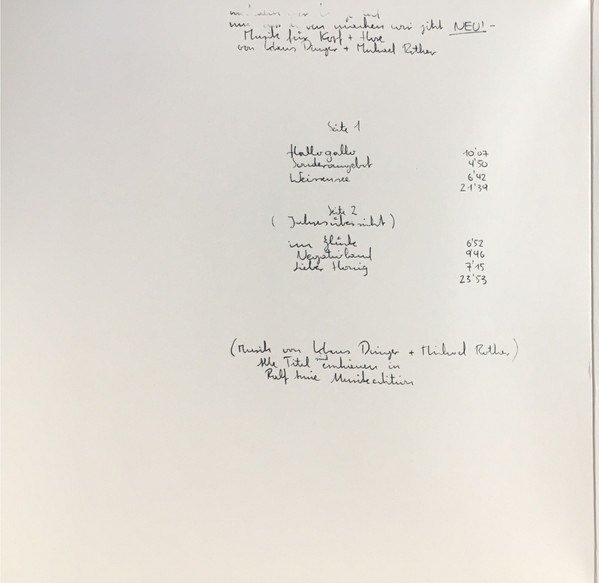 wir jetzt NEU! -
Musik für Kopf + Ohre
von Klaus Dinger + Michael Rother
Seite 1
Hallogallo 10'07
Sonderangebot 4'50
Weissensee 6'42
21'39
Seite 2
( Jahresübersicht )
im Glück 6'52
Negativland 9'46
Lieber Honig 7'15
23'53
(Musik von Klaus Dinger + Michael Rother)
Alle Titel erschienen in
Ralf Arnie Musikedition